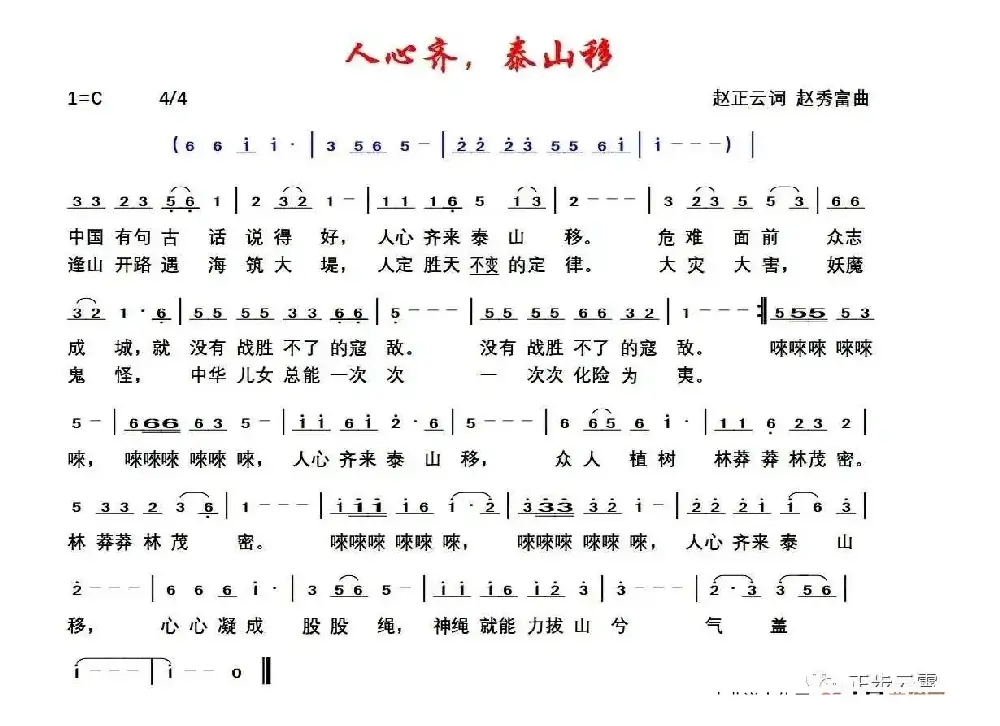 人心齐，泰山移
1=C 4/4 赵正云词 赵秀富曲
( 6 6 i i · | 3 5 6 5 － | 2 2 2 3 5 5 6 i | i － － － ) |
3 3 2 3 5 6 1 | 2 3 2 1 － | 1 1 1 6 5 1 3 | 2 － － － | 3 2 3 5 5 3 | 6 6
中国 有句 古 话 说 得 好， 人心 齐来 泰 山 移。 危 难 面 前 众志
逢山 开路 遇 海 筑 大 堤， 人定 胜天 不变 的 定 律。 大 灾 大 害， 妖魔
3 2 1 · 6 | 5 5 5 5 3 3 6 6 | 5 － － － | 5 5 5 5 6 6 3 2 | 1 － － － :‖ 5 5 5 5 3
成 城，就 没有 战胜 不了 的寇 敌。 没有 战胜 不了 的寇 敌。 唻唻唻 唻唻
鬼 怪， 中华 儿女 总能 一次 次 一 次次 化险 为 夷。
5 － | 6 6 6 6 3 5 － | i i 6 i 2 · 6 | 5 － － － | 6 6 5 6 i · | 1 1 6 2 3 2 |
唻， 唻唻唻 唻唻 唻， 人心 齐来 泰 山 移， 众 人 植 树 林莽 莽 林茂 密。
5 3 3 2 3 6 | 1 － － － | i i i i 6 i · 2 | 3 3 3 3 2 i － | 2 2 2 i i 6 3 |
林 莽莽 林 茂 密。 唻唻唻 唻唻 唻， 唻唻唻 唻唻 唻， 人心 齐来 泰 山
2 － － － | 6 6 6 i · | 3 5 6 5 － | i i i 6 i 2 3 | 3 － － － | 2 · 3 3 5 6 |
移， 心 心 凝 成 股 股 绳， 神绳 就能 力拔 山 兮 气 盖
i － － － | i － － 0 ‖
正步云霄